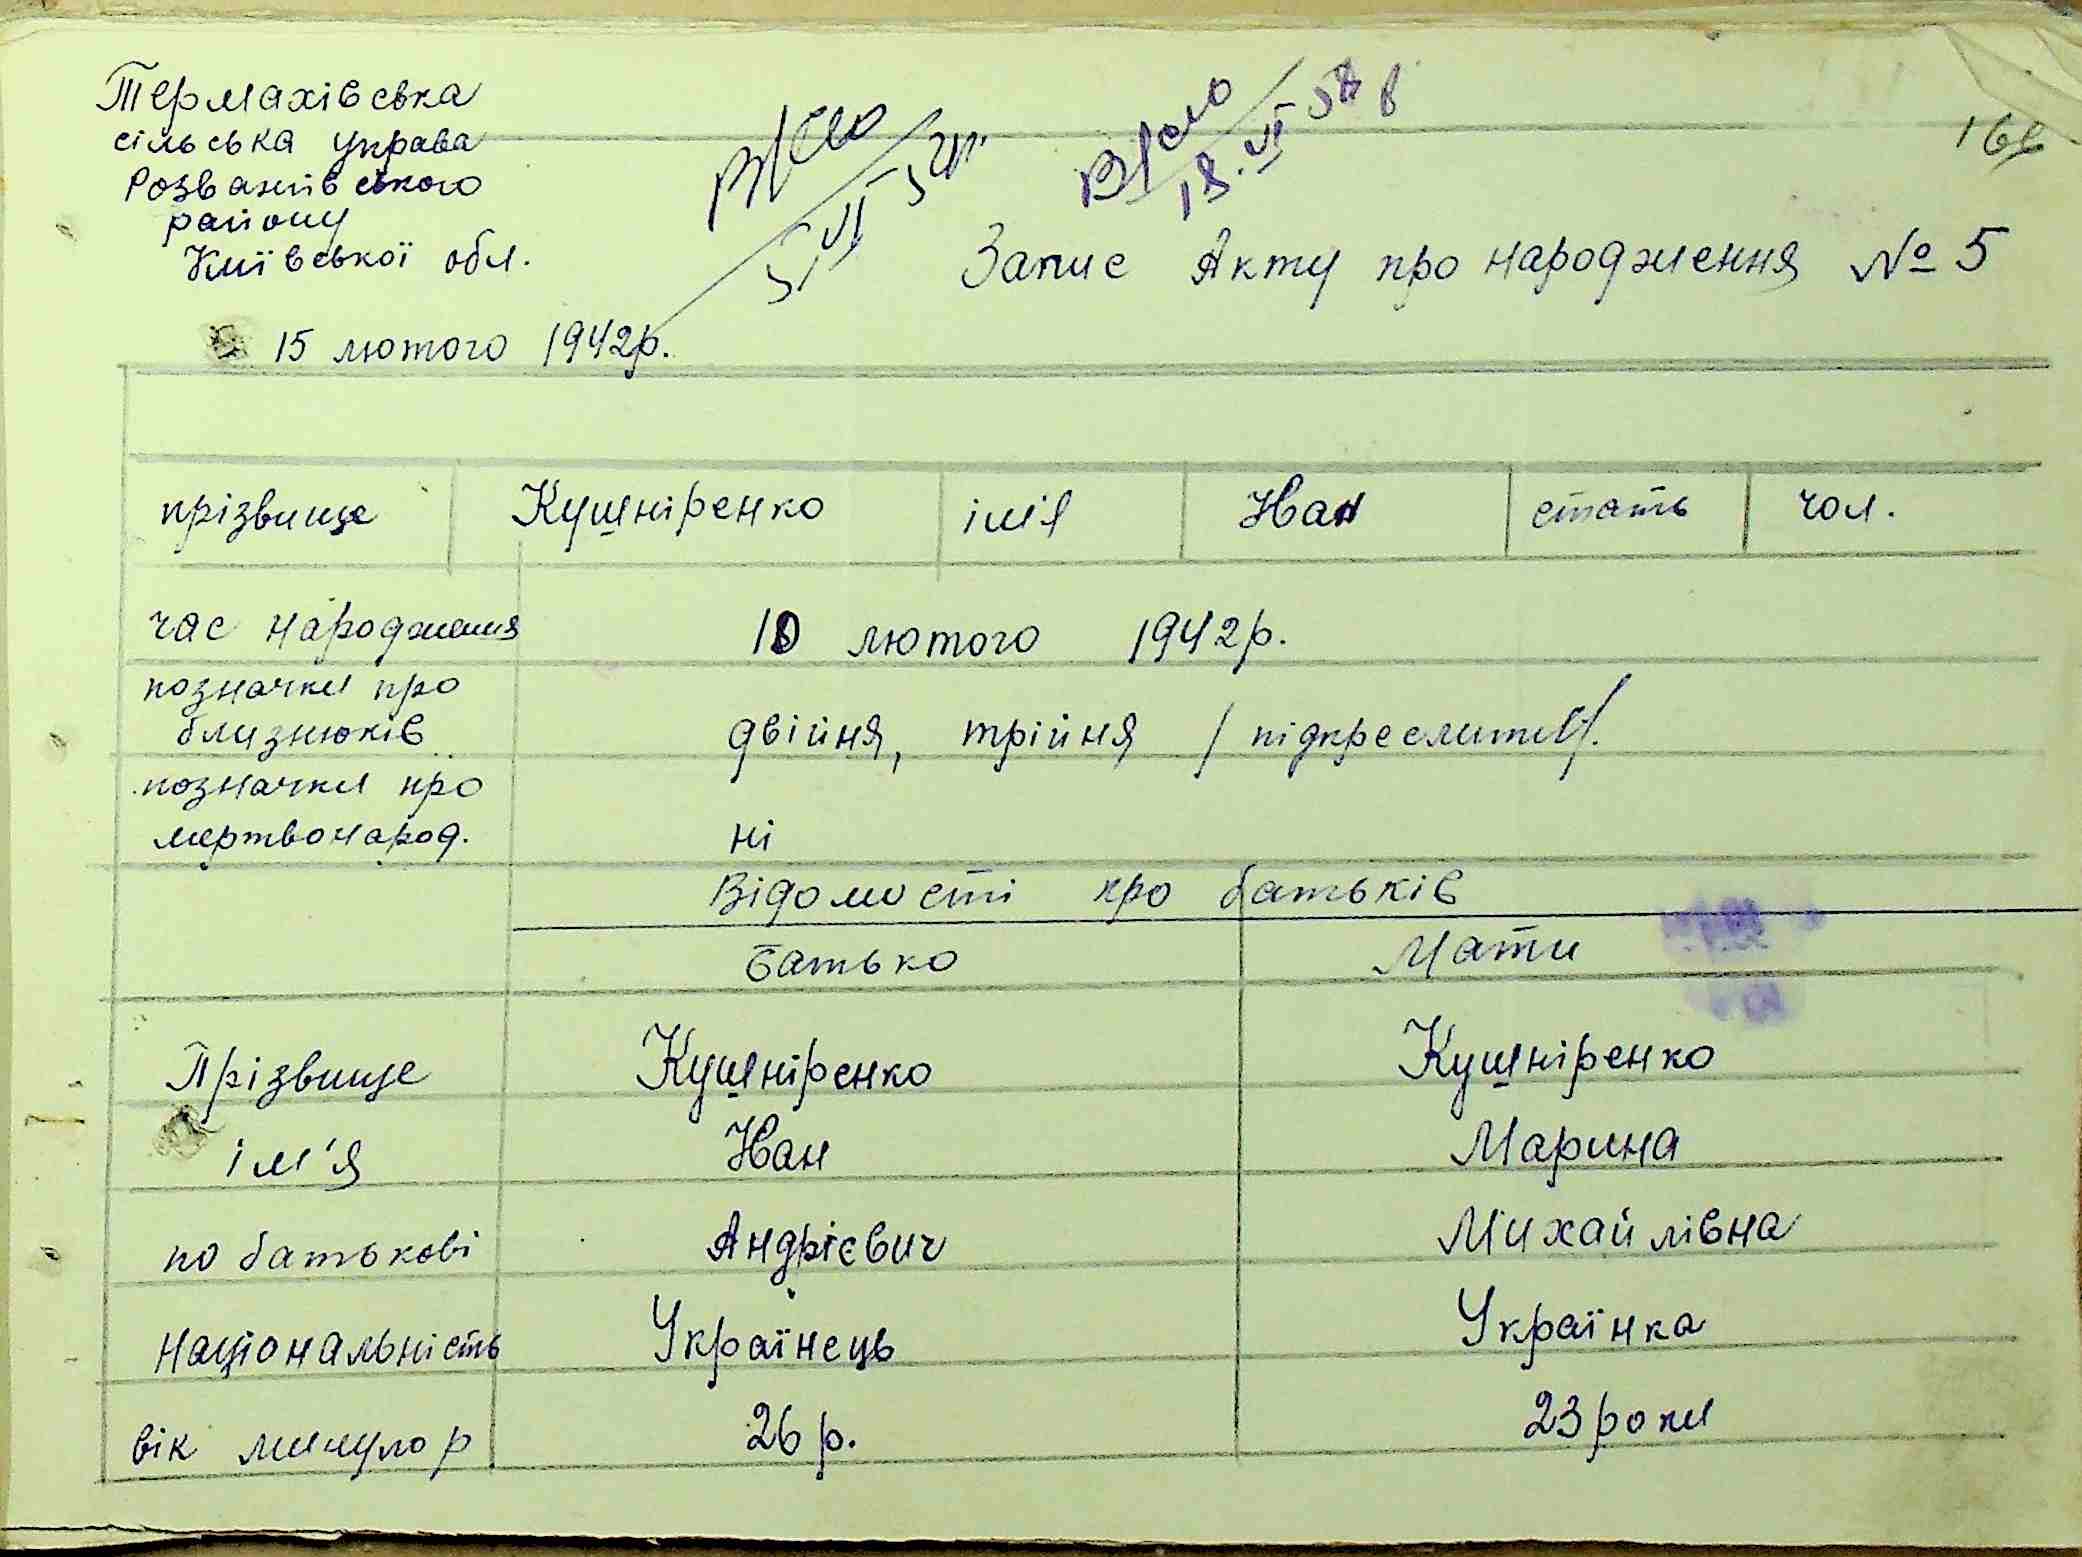 Термахівська
сільська управа
Розважівського
району
Київської обл.
В/село
В/село
18.VI 58
Запис Акту про народження № 5
15 лютого 1942р.
прізвище Кушніренко імія Іван стать чол.
час народження 10 лютого 1942р.
позначки про
близнюків двійня, трійня /підкреслити/.
позначки про
мертвонарод. ні
Відомості про батьків
Батько Мати
Прізвище Кушніренко Кушніренко
ім'я Іван Марина
по батькові Андрієвич Михайлівна
національність Українець Українка
вік минуло р 26 р. 23 роки